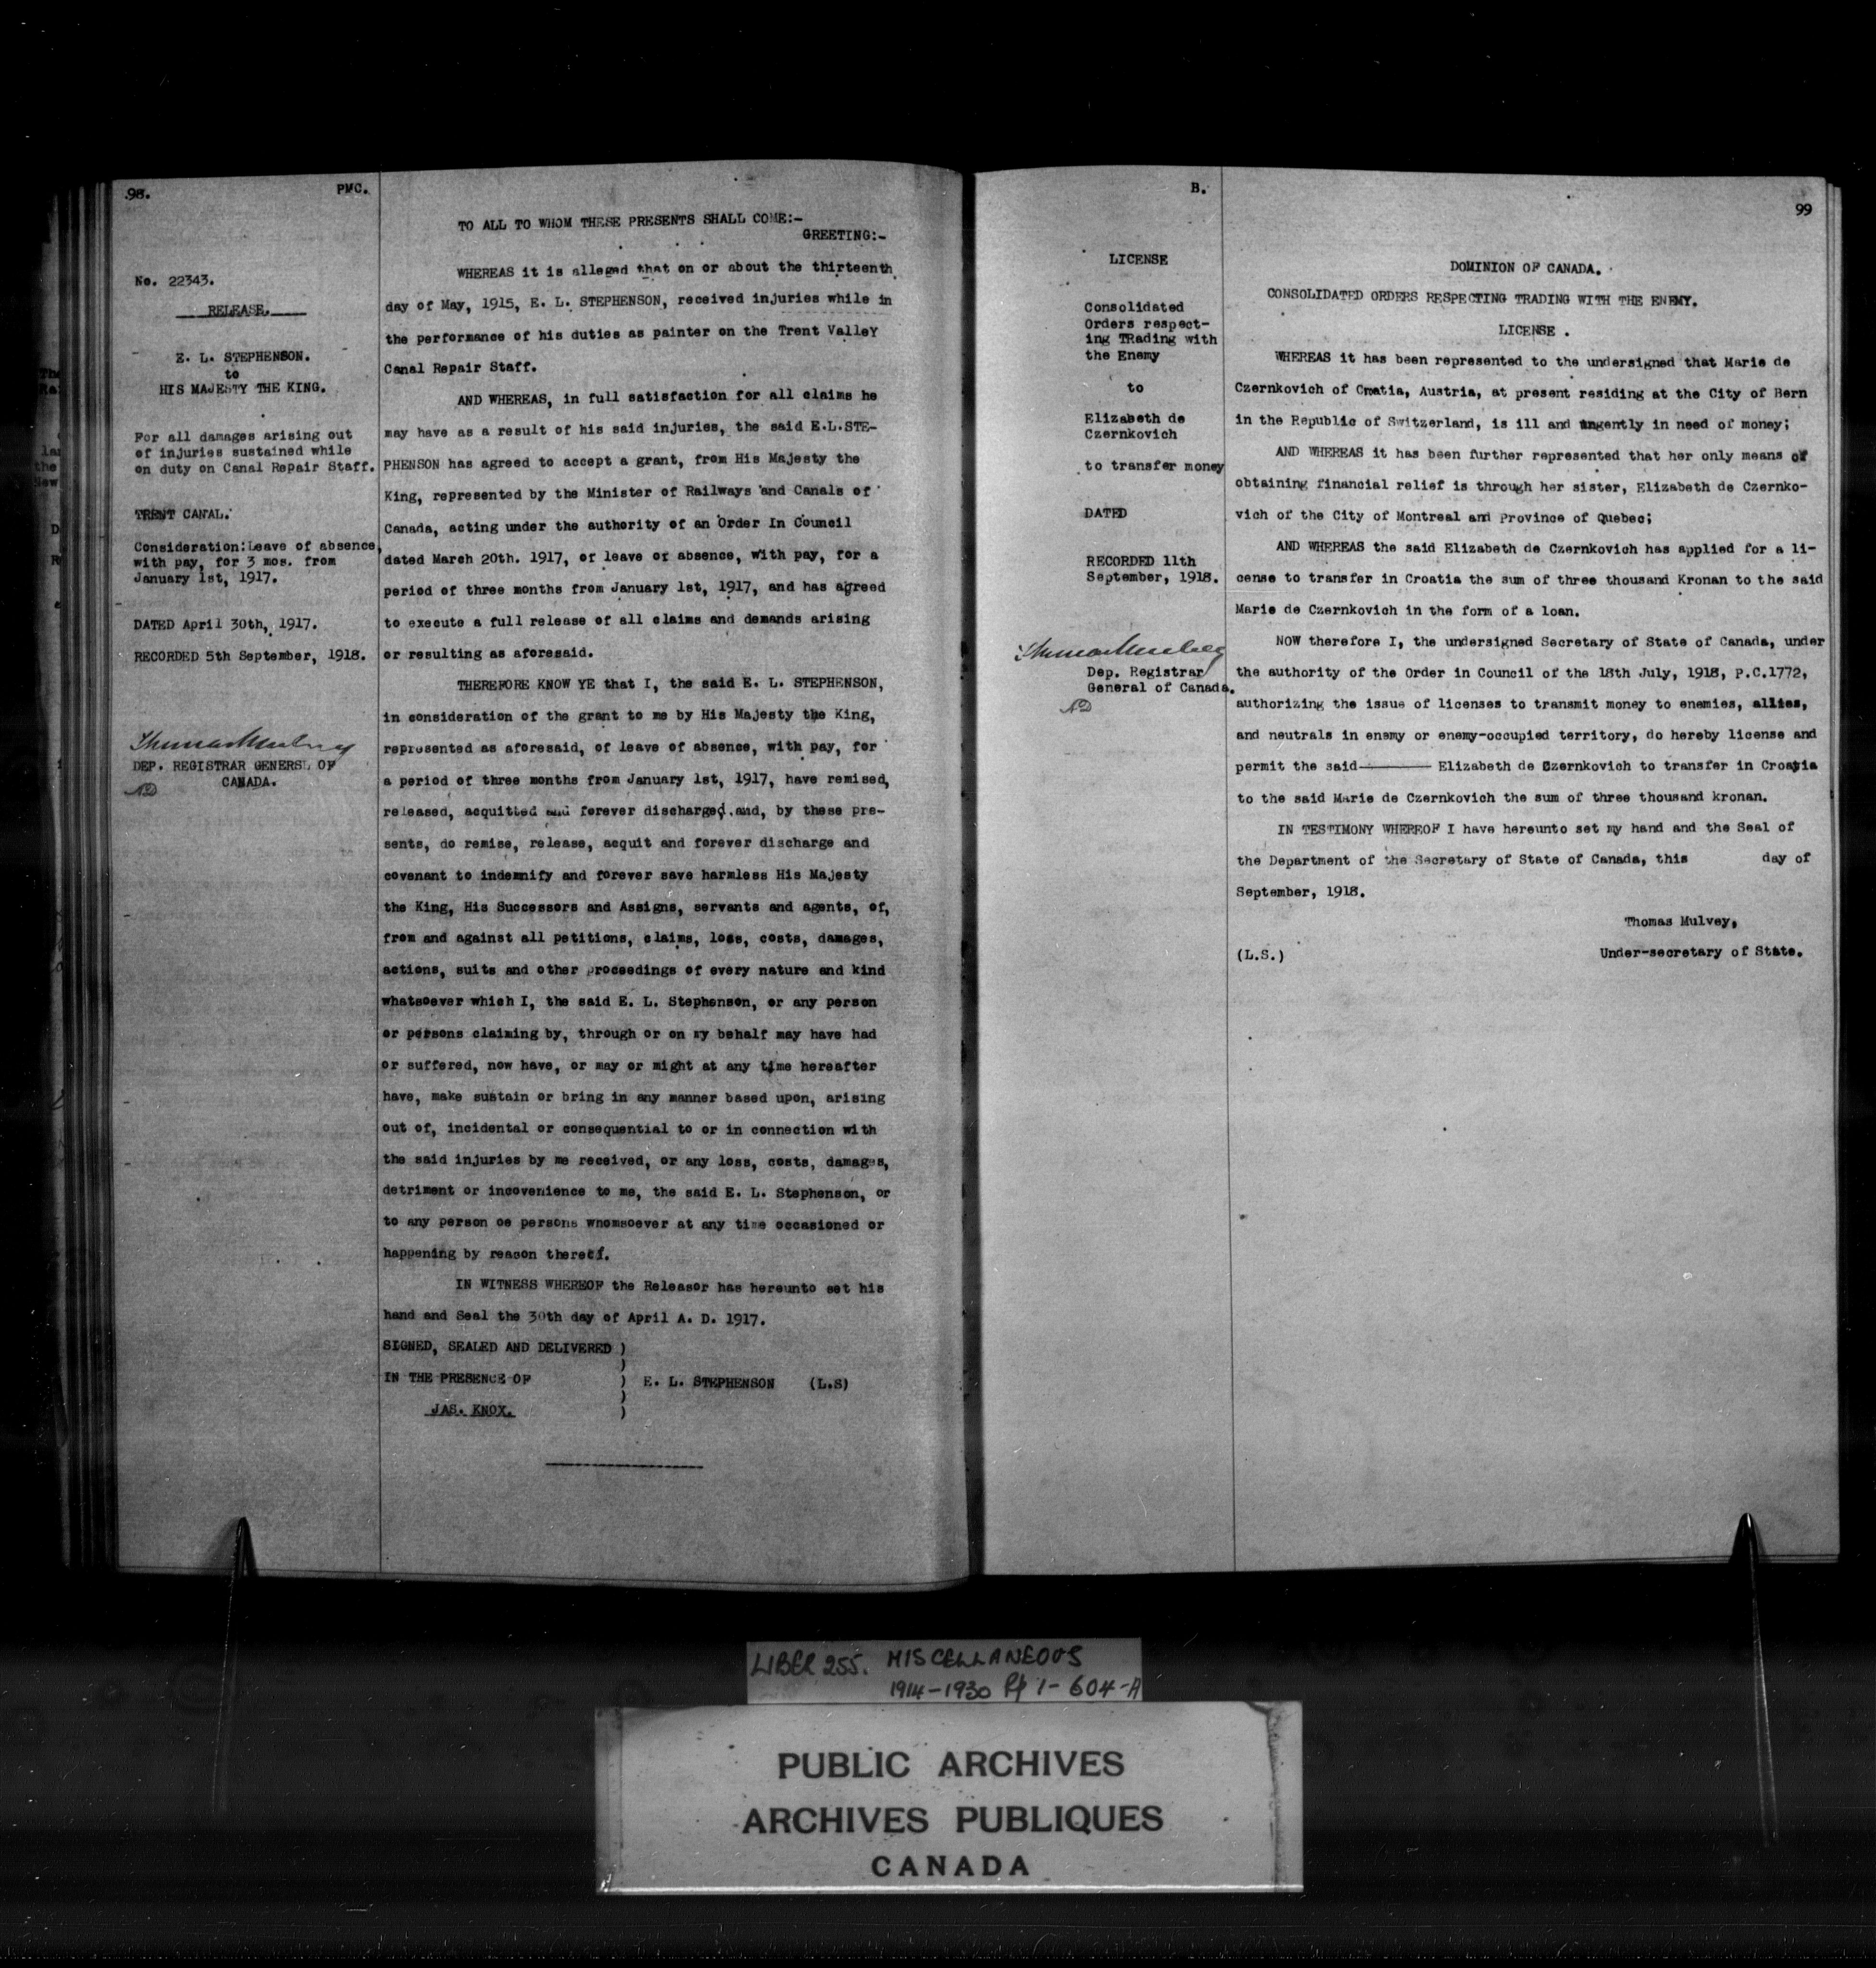 98.
PMC.
No. 22343.
RELEASE.
E. L. STEPHENSON.
to
HIS MAJESTY THE KING.
For all damages arising out
of injuries sustained while
on duty on Canal Repair Staff.
TRENT CANAL.
Consideration:Leave of absence,
with pay, for 3 mos. from
January 1st, 1917.
DATED April 30th, 1917.
RECORDED 5th September, 1918.
Thomas Mulvey
DEP. REGISTRAR GENERSL OF
CANADA.
TO ALL TO WHOM THESE PRESENTS SHALL COME:-
GREETING:-
WHEREAS it is alleged that on or about the thirteenth
day of May, 1915, E. L. STEPHENSON, received injuries while in
the performance of his duties as painter on the Trent ValleY
Canal Repair Staff.
AND WHEREAS, in full satisfaction for all claims he
may have as a result of his said injuries, the said E.L.STE-
PHENSON has agreed to accept a grant, from His Majesty the
King, represented by the Minister of Railways and Canals of
Canada, acting under the authority of an Order In Council
dated March 20th. 1917, of leave of absence, with pay, for a
period of three months from January 1st, 1917, and has agreed
to execute a full release of all claims and demands arising
or resulting as aforesaid.
THEREFORE KNOW YE that I, the said E. L. STEPHENSON,
in consideration of the grant to me by His Majesty the King,
represented as aforesaid, of leave of absence, with pay, for
a period of three months from January 1st, 1917, have remised,
released, acquitted and forever discharged.and, by these pre-
sents, do remise, release, acquit and forever discharge and
covenant to indemnify and forever save harmless His Majesty
the King, His Successors and Assigns, servants and agents, of,
from and against all petitions, claims, loss, costs, damages,
actions, suits and other proceedings of every nature and kind
whatsoever which I, the said E. L. Stephenson, or any person
or persons claiming by, through or on my behalf may have had
or suffered, now have, or may or might at any time hereafter
have, make sustain or bring in any manner based upon, arising
out of, incidental or consequential to or in connection with
the said injuries by me received, or any loss, costs, damages,
detriment or incovenience to me, the said E. L. Stephenson, or
to any person oe persons whomsoever at any time occasioned or
happening by reason thereof.
IN WITNESS WHEREOF the Releasor has hereunto set his
hand and Seal the 30th day of April A. D. 1917.
SIGNED, SEALED AND DELIVERED )
)
IN THE PRESENCE OF ) E. L. STEPHENSON (L.S)
)
JAS. KNOX. )
B.
99
LICENSE
Consolidated
Orders respect-
ing TRading with
the Enemy
to
Elizabeth de
Czernkovich
to transfer money
DATED
RECORDED 11th
September, 1918.
Thomas Mulvey
Dep. Registrar
General of Canada.
DOMINION OF CANADA.
CONSOLIDATED ORDERS RESPECTING TRADING WITH THE ENEMY.
LICENSE .
WHEREAS it has been represented to the undersigned that Marie de
Czernkovich of Croatia, Austria, at present residing at the City of Bern
in the Republic of Switzerland, is ill and urgently in need of money;
AND WHEREAS it has been further represented that her only means of
obtaining financial relief is through her sister, Elizabeth de Czernko-
vich of the City of Montreal and Province of Quebec;
AND WHEREAS the said Elizabeth de Czernkovich has applied for a li-
cense to transfer in Croatia the sum of three thousand Kronan to the said
Marie de Czernkovich in the form of a loan.
NOW therefore I, the undersigned Secretary of State of Canada, under
the authority of the Order in Council of the 18th July, 1918, P.C.1772,
authorizing the issue of licenses to transmit money to enemies, allies,
and neutrals in enemy or enemy-occupied territory, do hereby license and
permit the said-------- Elizabeth de Czernkovich to transfer in Croatia
to the said Marie de Czernkovich the sum of three thousand kronan.
IN TESTIMONY WHEREOF I have hereunto set my hand and the Seal of
the Department of the Secretary of State of Canada, this day of
September, 1918.
Thomas Mulvey,
(L.S.) Under-secretary of State.
LIBER 255. MISCELLANEOUS
1914-1930 Pf 1-604-A
PUBLIC ARCHIVES
ARCHIVES PUBLIQUES
CANADA